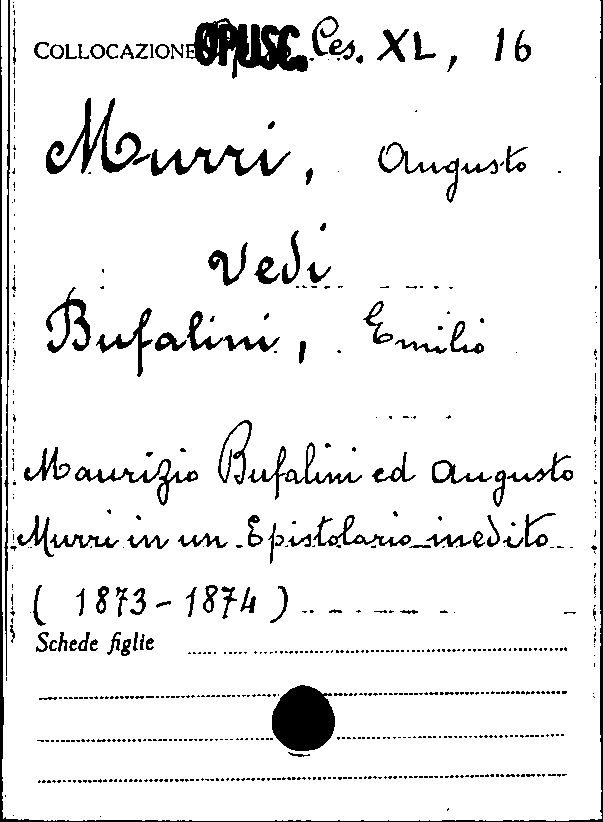 COLLOCAZIONE OPUSC. Ces. XL, 16
Murri, Augusto
Vedi
Bufalini, Emilio
Maurizio Bufalini ed Augusto
Murri in un Epistolario inedito
( 1873 - 1874 )
Schede figlie